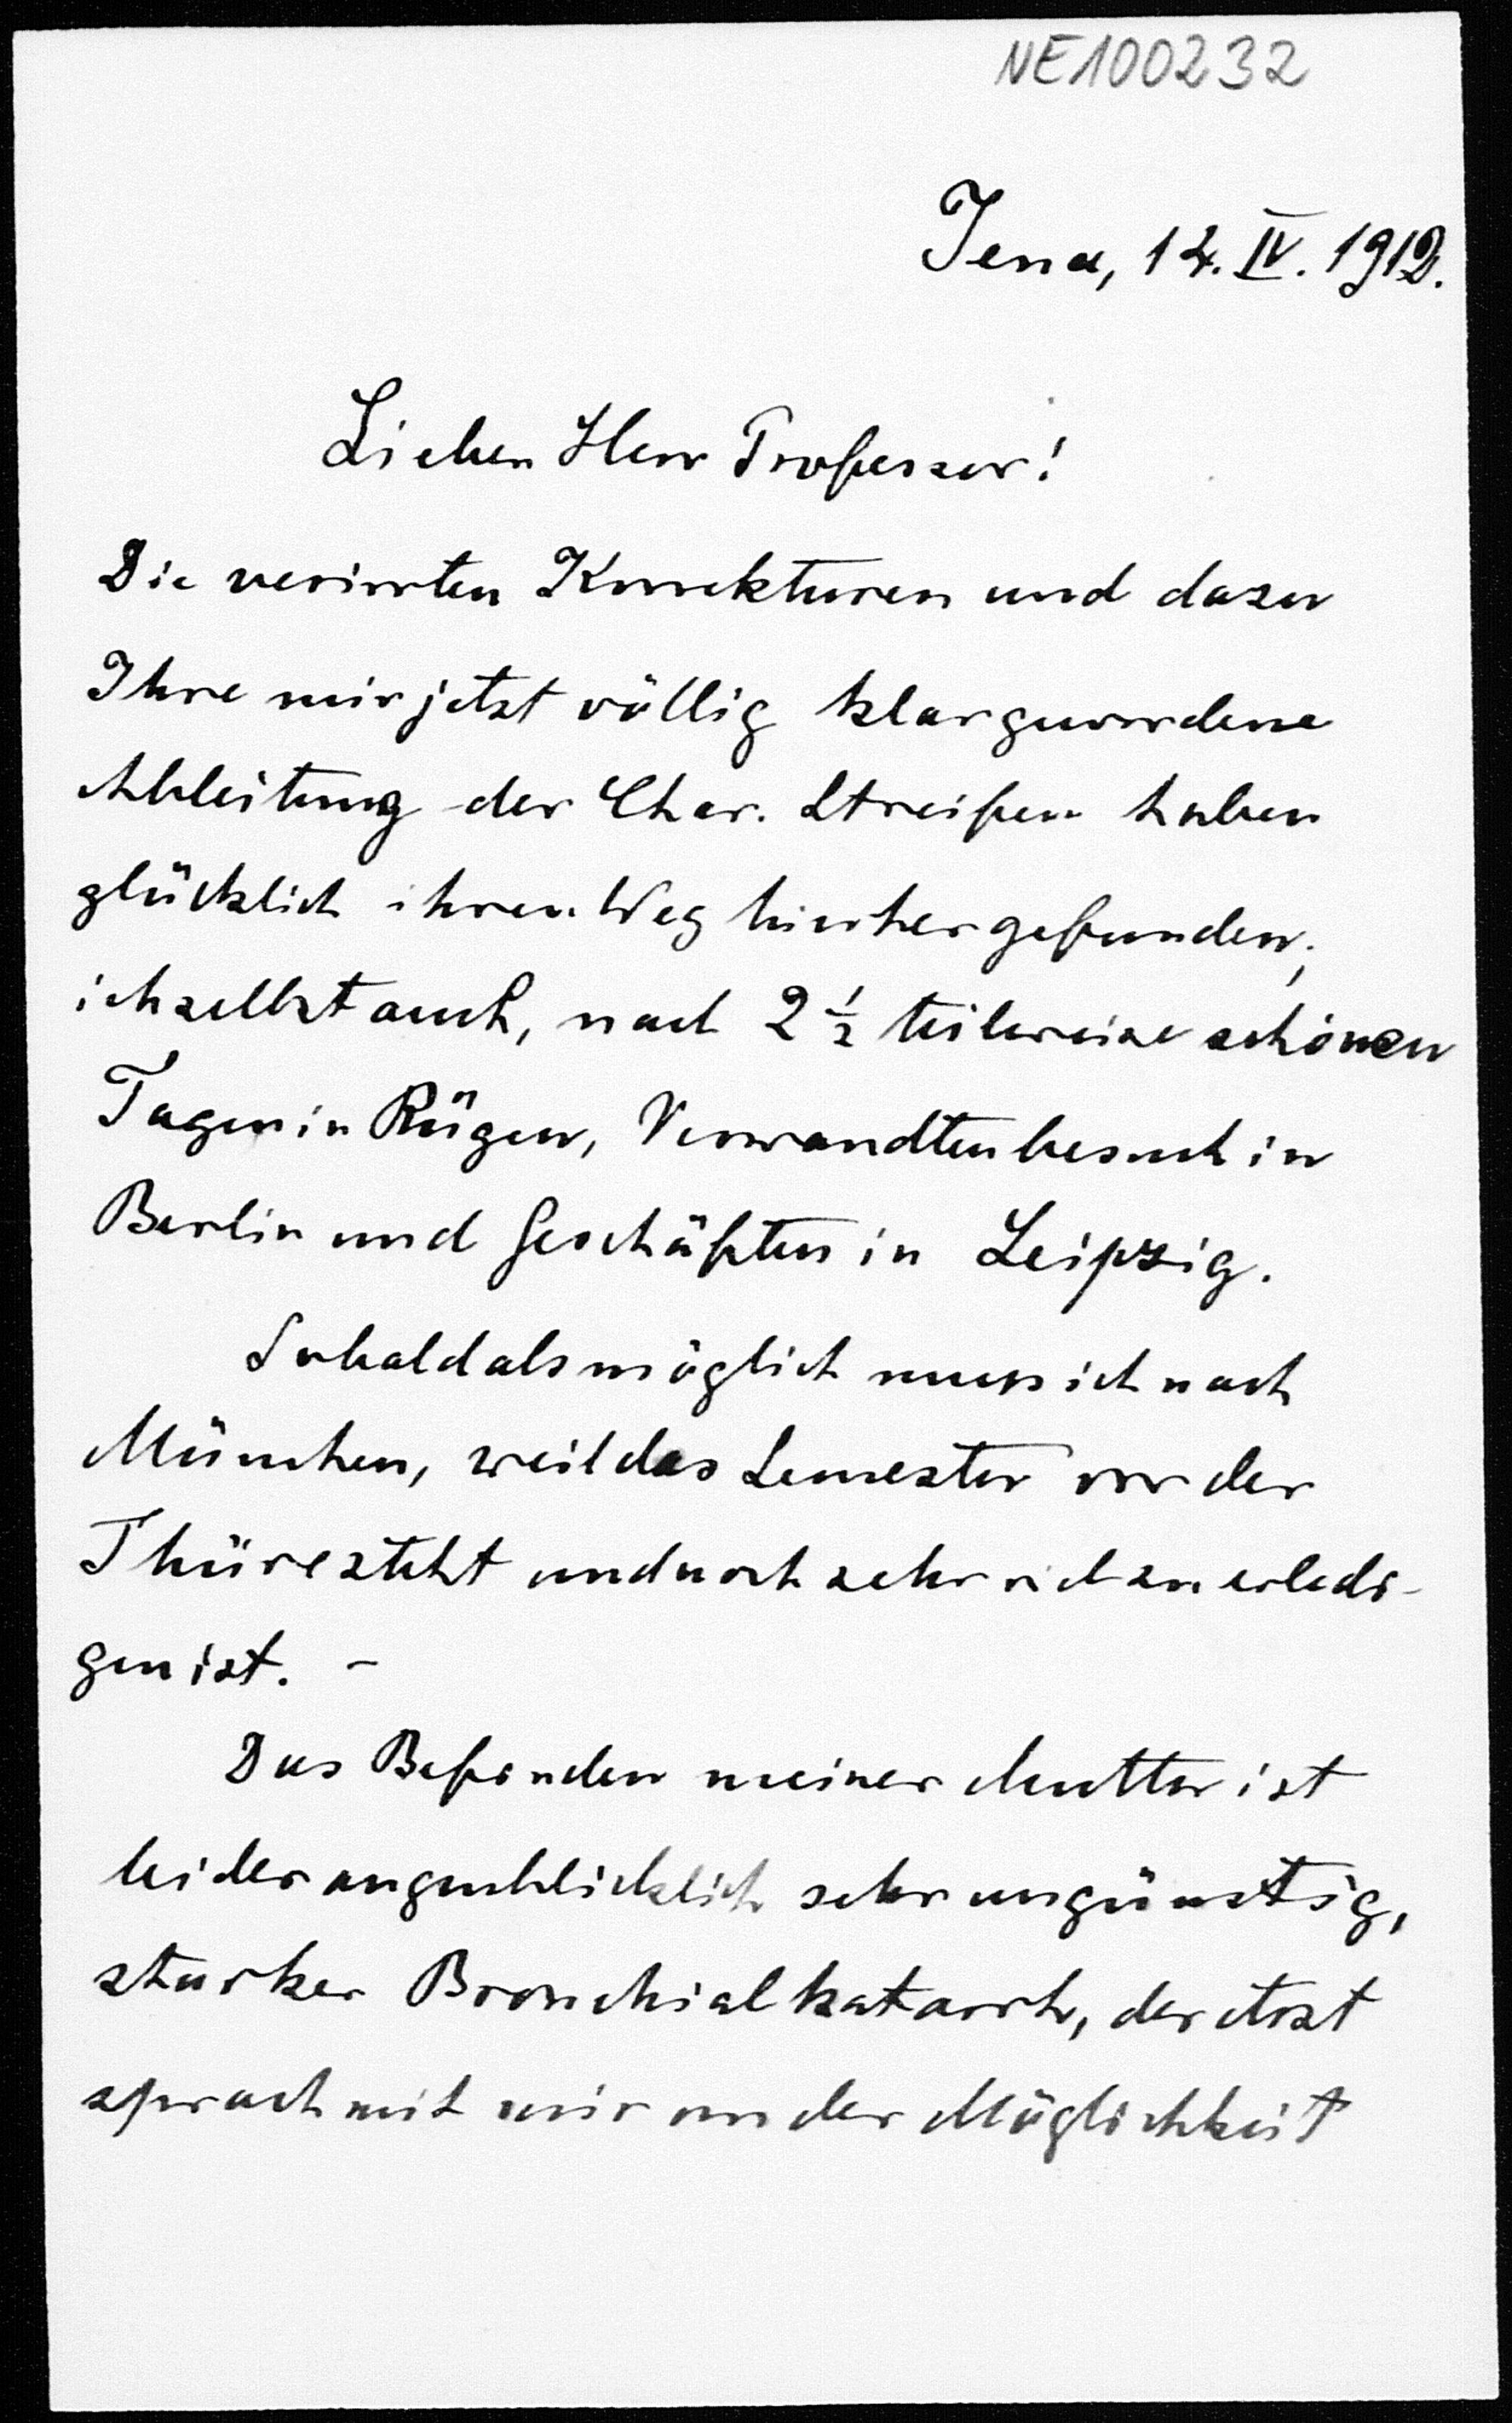 NE100232
Jena, 14. IV. 1912.
Lieber Herr Professor!
Die verirrten Korrekturen und dazu
Ihre mir jetzt völlig klargewordene
Ableitung der Char. Streifen haben
glücklich ihren Weg hierher gefunden;
ich selbst auch, nach 2 1/2 teilweise schönen
Tagen in Rügen, Verwandtenbesuch in
Berlin und Geschäften in Leipzig.
Sobald als möglich muss ich nach
München, weil das Semester vor der
Thüre steht und noch sehr viel zu erledi-
gen ist. -
Das Befinden meiner Mutter ist
leider augenblicklich sehr ungünstig,
starker Bronchialkatarrh, der Arzt
sprach mit mir von der Möglichkeit